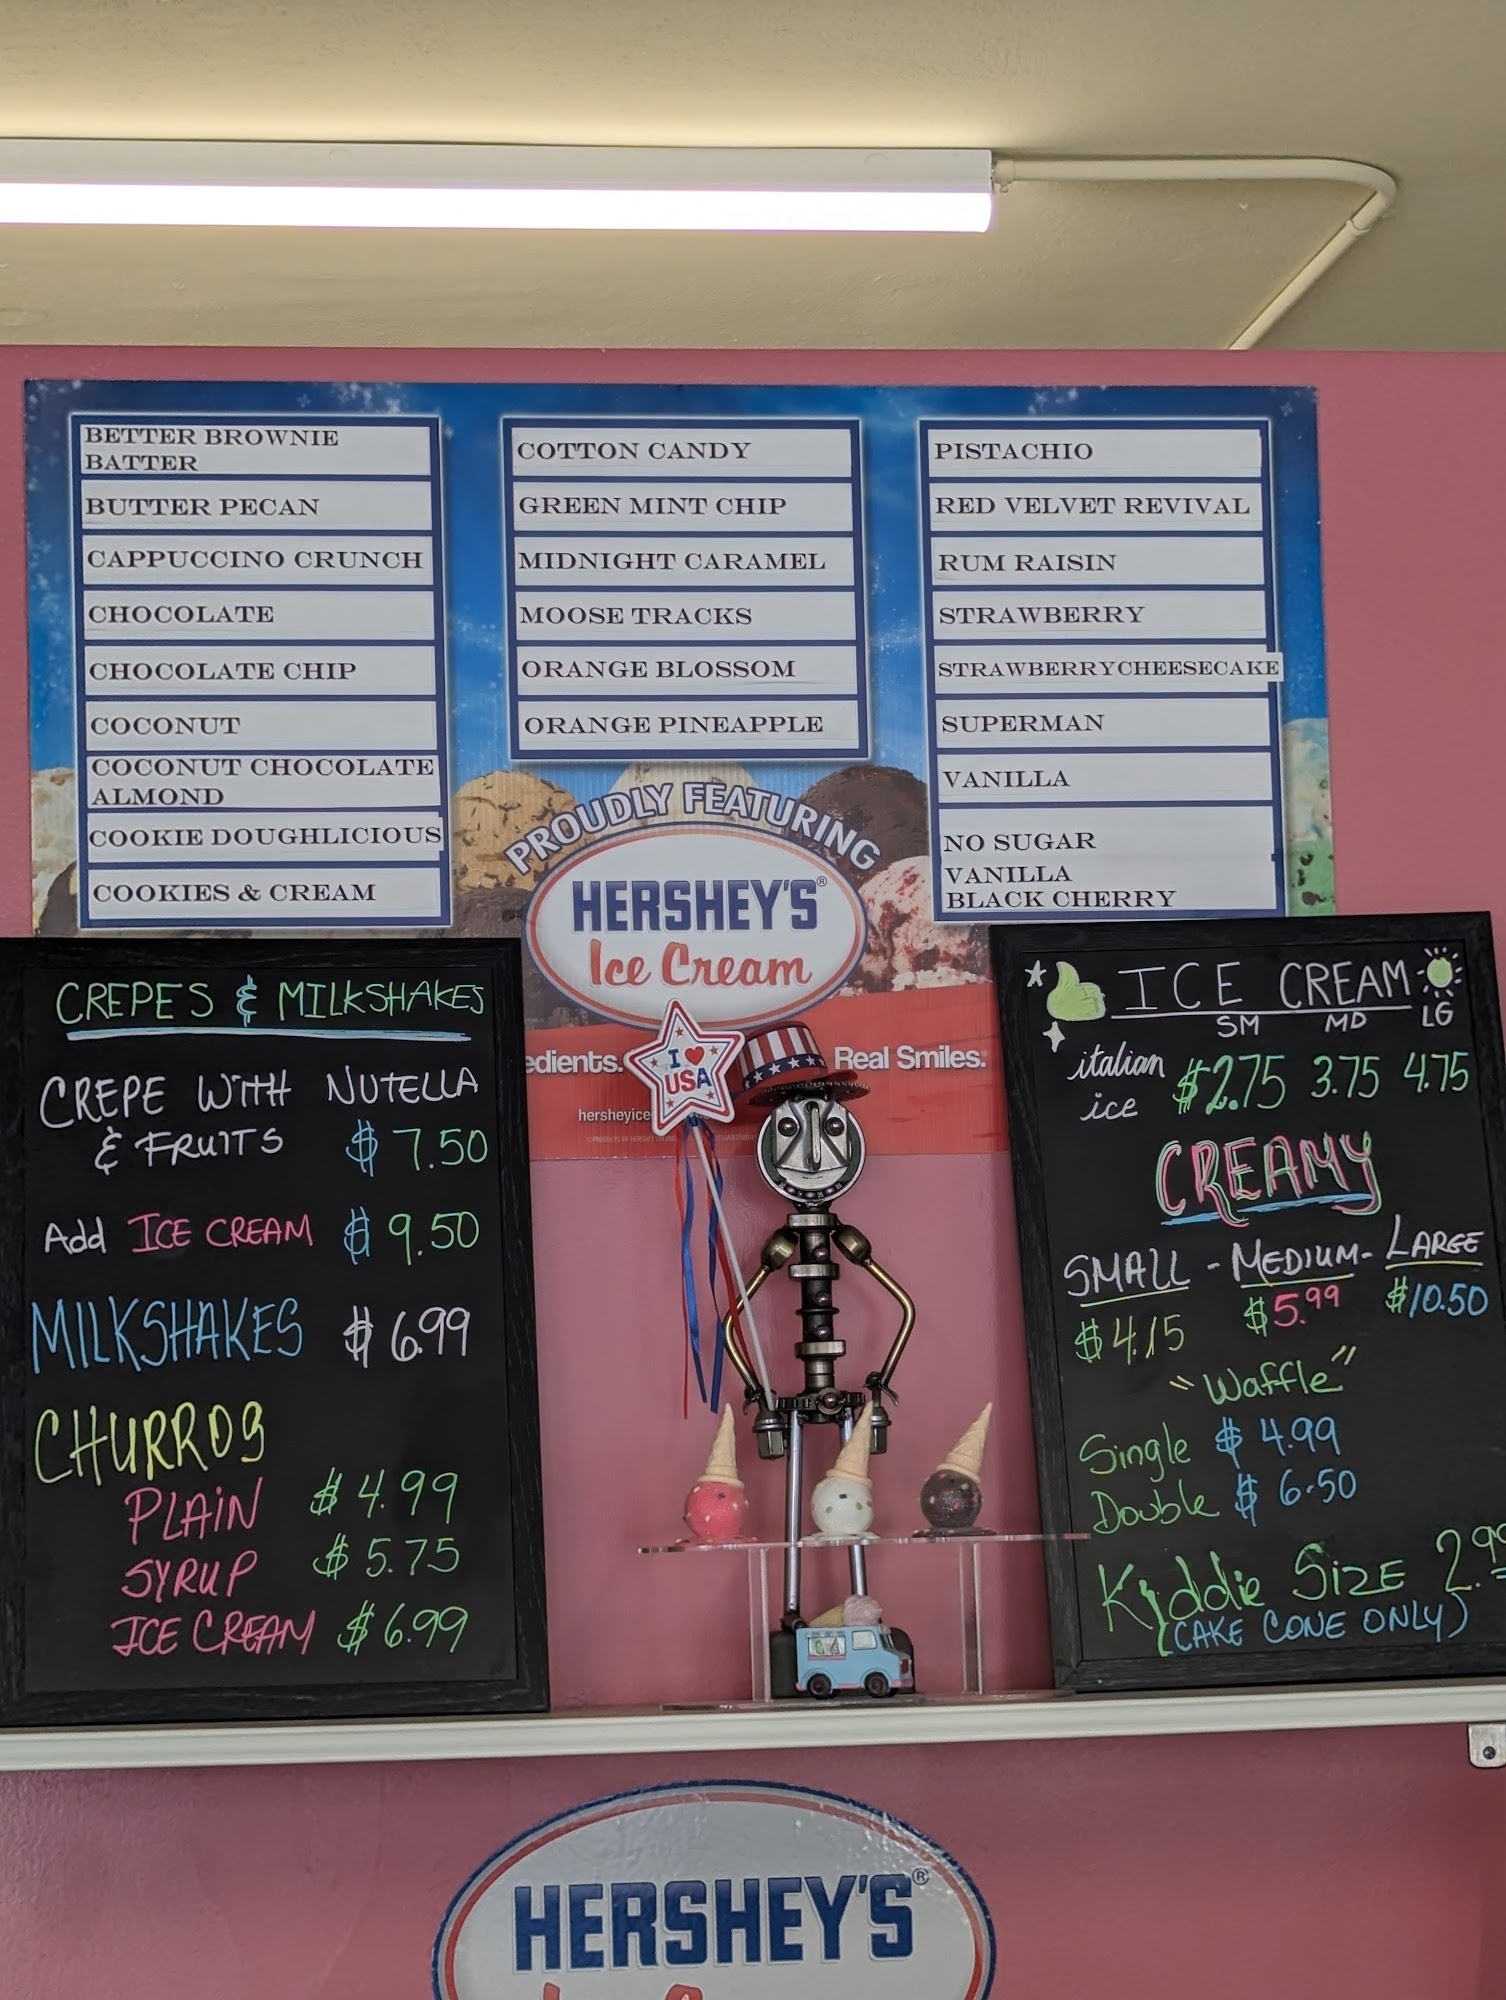 BETTER BROWNIE
BATTER
BUTTER PECAN
CAPPUCCINO CRUNCH
CHOCOLATE
CHOCOLATE CHIP
COCONUT
COCONUT CHOCOLATE
ALMOND
COOKIE DOUGHLICIOUS
COOKIES & CREAM
COTTON CANDY
GREEN MINT CHIP
MIDNIGHT CARAMEL
MOOSE TRACKS
ORANGE BLOSSOM
ORANGE PINEAPPLE
PISTACHIO
RED VELVET REVIVAL
RUM RAISIN
STRAWBERRY
STRAWBERRY CHEESECAKE
SUPERMAN
VANILLA
NO SUGAR
VANILLA
BLACK CHERRY
PROUDLY FEATURING
HERSHEY'S®
Ice Cream
Real Smiles.®
I ♥
USA
CREPES & MILKSHAKES
CREPE WITH NUTELLA
& FRUITS $ 7.50
Add ICE CREAM $ 9.50
MILKSHAKES $ 6.99
CHURROS
PLAIN $ 4.99
SYRUP $ 5.75
ICE CREAM $ 6.99
ICE CREAM
SM MD LG
italian
ice $2.75 3.75 4.75
CREAMY
SMALL - MEDIUM - LARGE
$4.15 $5.99 $10.50
"Waffle"
Single $ 4.99
Double $ 6.50
Kiddie SIZE 2.99
(CAKE CONE ONLY)
HERSHEY'S®